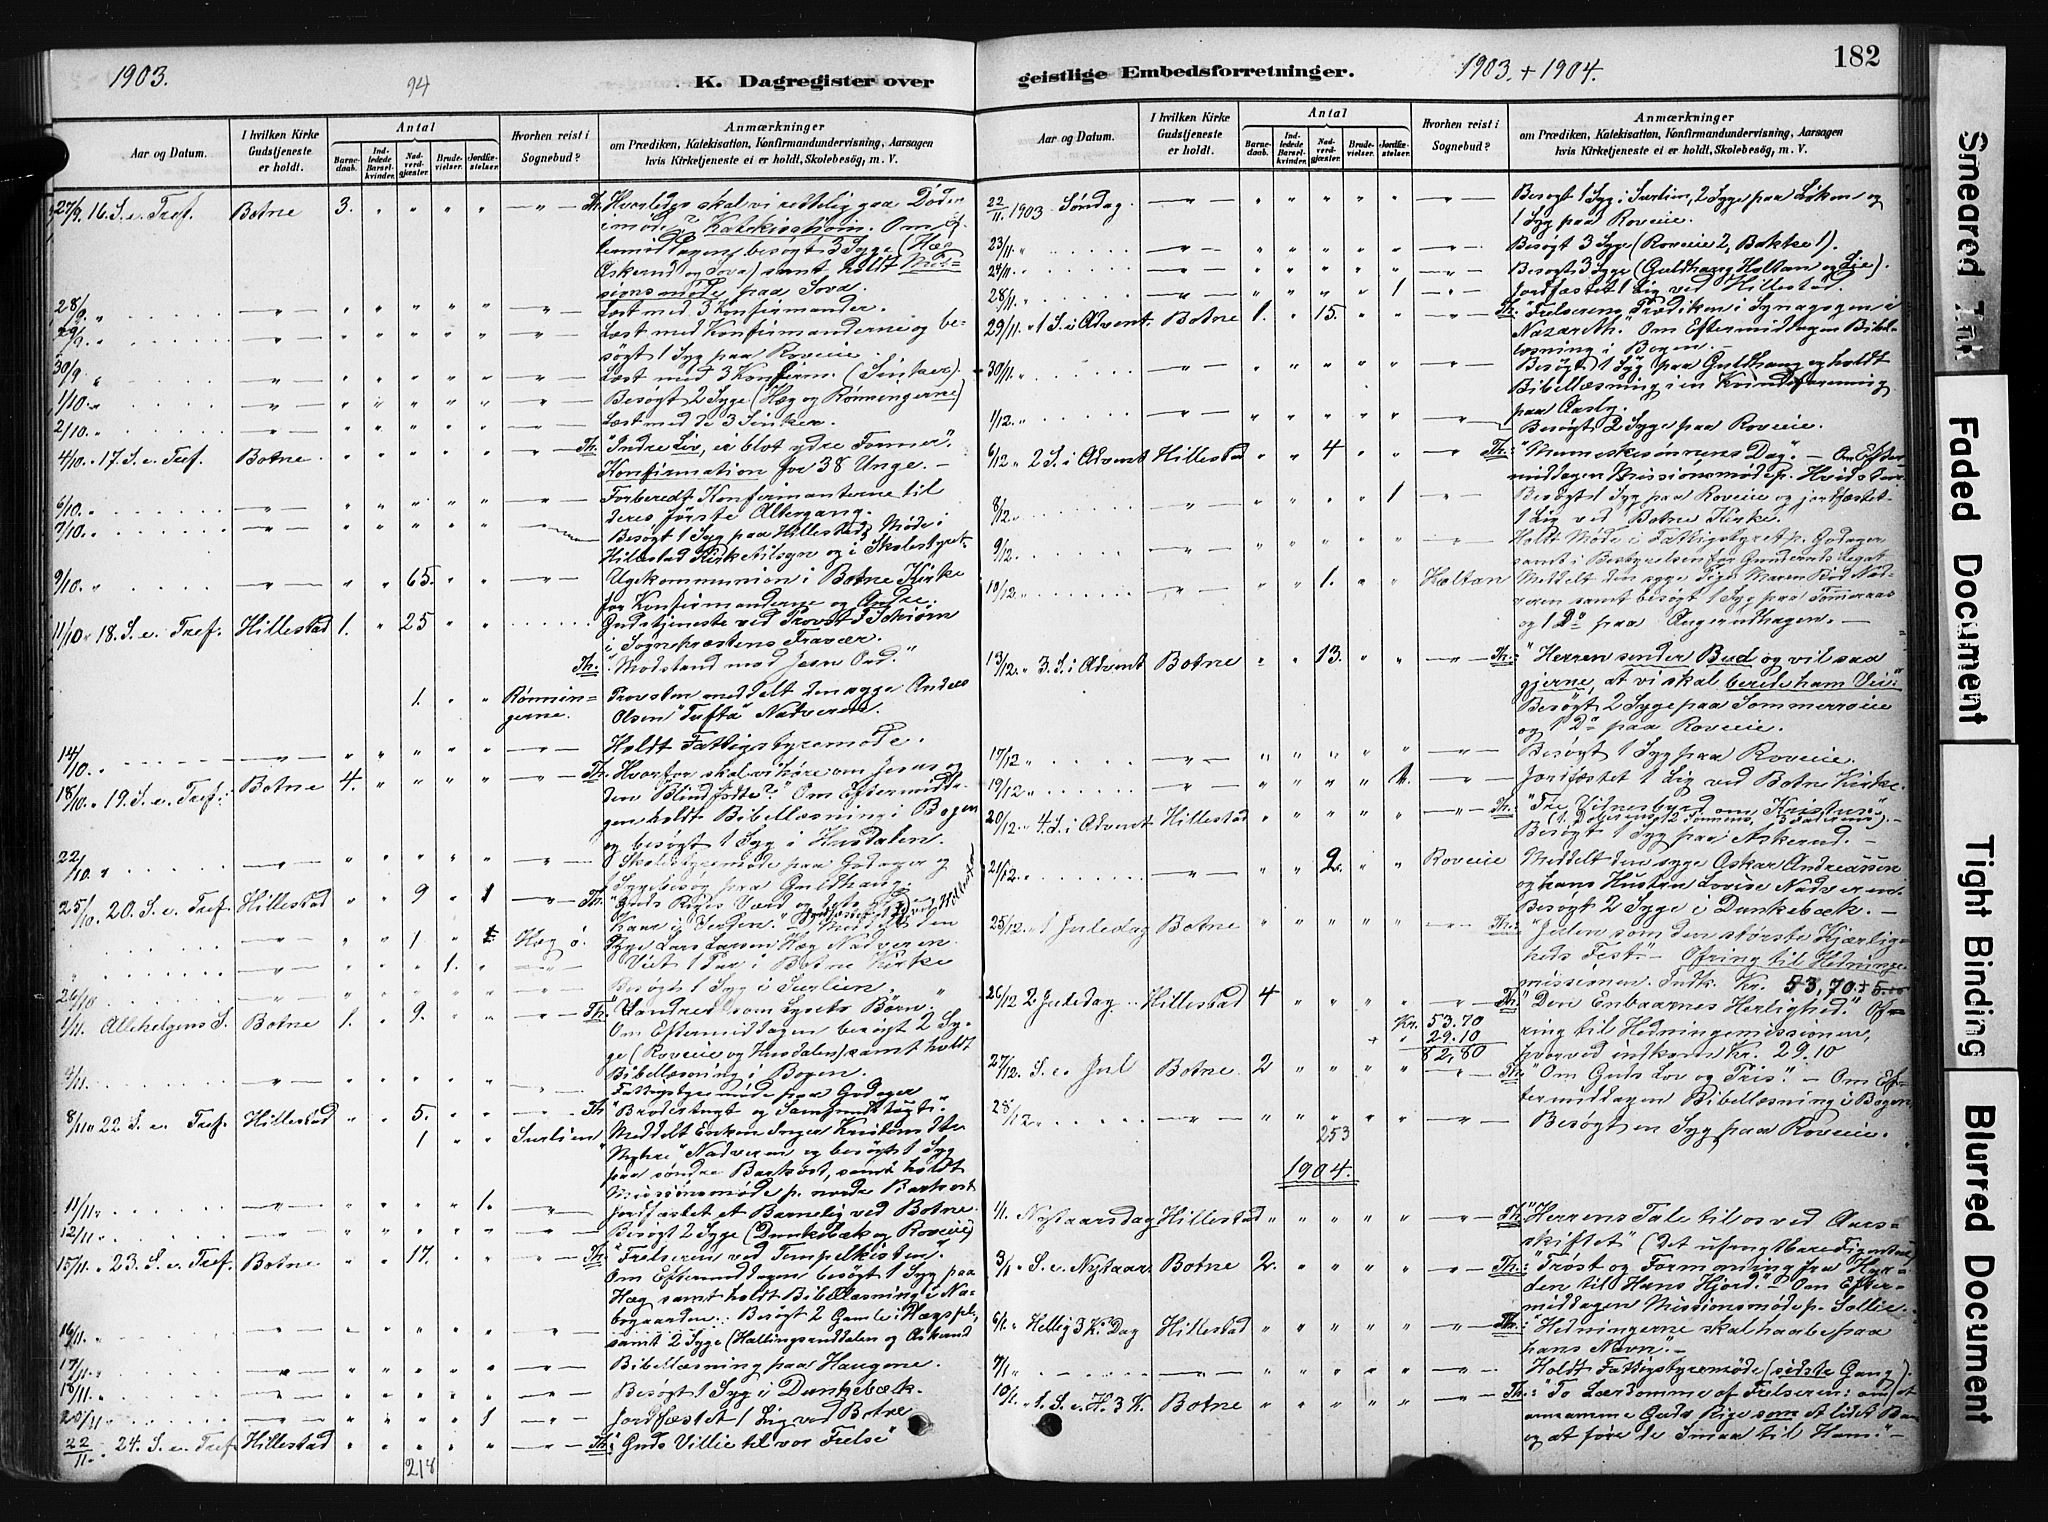 1903.
94
K. Dagregister over
Aar og Datum.
I hvilken Kirke Gudstjeneste er holdt.
Antal
Barnedaab.
Indledede Barselkvinder.
Nadverdgjæster.
Brudevielser.
Jordfæstelser.
Hvorhen reist i Sognebud?
Anmærkninger
om Prædiken, Katekisation, Konfirmandundervisning, Aarsagen
hvis Kirketjeneste ei er holdt, Skolebesøg, m. V.
27/9. 16. S. e. Tref. Botne 3. " " " " — " — Th. Hvorledes skal vi rettelig gaa Døden
imøde? Katekisation. Om Ef-
termiddagen besøgt 3 Syge (Hæg
Askerud og Sova) samt holdt Mis-
sionsmøde paa Sova.
28/9. " — " — " " " " " — " — Læst med 3 Konfirmander.
29/9. " — " — " " " " " — " — Læst med Konfirmanderne og be-
søgt 1 Syg paa Roveie.
30/9 " — " — " " " " " — " — Læst med 3 Konfirm. (Sinker).
1/10. " — " — " " " " " — " — Besøgt 2 Syge (Hæg og Rønningerne)
2/10. " — " — " " " " " — " — Læst med de 3 Sinker.
4/10. " 17. S. e. Tref. Botne " " " " " — " — Th. "Indre Liv, ei blot ydre Former".
Konfirmation for 38 Unge. —
6/10. " — " — " " " " " — " — Forberedt Konfirmanterne til
deres første Altergang.
7/10. " — " — " " " " " — " — Besøgt 1 Syg paa Hillestad, Møde i
Hillestad Kirketilsyn og i Skolestyret.
9/10. " — " — " " 65. " " — " — Ugekommunion i Botne Kirke
for Konfirmanderne og Andre.
11/10 " 18. S. e. Tref. Hillestad 1. " 25 " " Gudstjeneste ved Provst
i Sognepræstens Fravær.
Th. "Modstand mod Jesu Ord."
1. " " Rønningerne. Provsten meddelt den syge Anders
Olsen "Tufta" Nadveren.
14/10. — " — " " " " " — " — Holdt Fattigstyremøde.
18/10. " 19. S. e. Tref. Botne 4. " " " " — " — Th. Hvorfor skal vi høre om Jesus og
den "Blindfødte?" Om Eftermidda-
gen holdt Bibellæsning i Bogen
og besøgt 1 Syg i Husdalen.
22/10. " — " — " " " " " — " — Skolestyremøde paa Godager og
1 Sygebesøg paa Guldhaug.
25/10. 20. S. e. Tref. Hillestad " " 9 " 1 — " — Th. "Guds Riges Værd og
Kaar i Verden." Meddelt den
— " — " " 1 " Hæg ø. Syge Lars Larsen Hæg Nadveren.
" — " — " " " 1. " — " — Viet 1 Par i Botne Kirke
26/10 — " — " " " " " — " — Besøgt 1 Syg i Surlien.
1/11. Allehelgens S. Botne 1. " 9. " " — " — Th. Vandrer som Lysets Børn.
Om Eftermiddagen besøgt 2 Sy-
ge (Roveie og Husdalen) samt holdt
Bibellæsning i Bogen.
4/11. — " — " " " " " — " — Fattigstyremøde paa Godager
8/11 " 22. S. e. Tref. Hillestad " " 5. " " — " — Th "Brodertugt og Samfundstugt".
1 " " Surlien Meddelt Enken Inger Kristine
"Myhre" Nadveren og besøgt 1 Syg
paa søndre Barkost, samt holdt
Missionsmøde p. nordre Barkost
11/11. " — " — " " " " 1. — " — Jordfæstet et Barnelig ved Botne.
12/11. — " — " " " " " — " — Besøgt 2 Syge (Dunkebæk og Roveie)
15/11. " 23. S. e. Tref. Botne " " 17. " " — " — Th. "Frelseren ved Tempelkisten".
Om Eftermiddagen besøgt 1 Syg paa
Hæg samt holdt Bibellæsning i Na-
bogaarden. Besøgt 2 Gamle i Hægspl.
16/11. " — " — " " " " " — " — samt 2 Syge (Hallingsruddalen og Askerud
17/11. " — " — " " " " " — " — Bibellæsning paa Haugene.
18/11. — " — " " " " " — " — Besøgt 1 Syg i Dunkebæk.
20/11 — " — " " " " 1 — " — Jordfæstet 1 Lig ved Botne
22/11. 24. S. e. Tref Hillestad " " " " " — " — Th. "Guds Villie til vor Frelse"
218
geistlige Embedsforretninger.
1903. + 1904.
182
Aar og Datum.
I hvilken Kirke Gudstjeneste er holdt.
Antal
Barnedaab.
Indledede Barselkvinder.
Nadverdgjæster.
Brudevielser.
Jordfæstelser.
Hvorhen reist i Sognebud?
Anmærkninger
om Prædiken, Katekisation, Konfirmandundervisning, Aarsagen
hvis Kirketjeneste ei er holdt, Skolebesøg, m. V.
22/11. 1903 Søndag — " — " " " " " — " — Besøgt 1 Syg i Surlien, 2 Syge paa Løken og
1 Syg paa Roveie.
23/11. " — " — " " " " " — " — Besøgt 3 Syge (Roveie 2, Bakke 1).
24/11. — " — " " " " " — " — Besøgt 3 Syge (Guldhaug Holtan og Lie).
28/11. — " — " " " " 1 — " — Jordfæstet 1 Lig ved Hillestad.
29/11. " 1 S. i Advent. Botne 1. " 15. " " — " — Th: "Frelserens Prædiken i Synagogen i
Nazareth". Om Eftermiddagen Bibel-
læsning i Bogen. —
30/11. — " — " " " " " — " — Besøgt 1 Syg paa Guldhaug og holdt
Bibellæsning i en Kvindeforening
paa Aasby.
1/12. — " — " " " " " — " — Besøgt 2 Syge paa Roveie.
6/12 " 2 S. i Advent Hillestad " " 4 " " — " — Th: "Menneskesønnens Dag". — Om Efter-
middagen Missionsmøde p. Hvidsten.
8/12 — " — " " " " 1 — " — Besøgt 1 Syg paa Roveie og jordfæstet
1 Lig ved Botne Kirke.
9/12. — " — " " " " " — " — Holdt Møde i Fattigstyret p. Godager
samt i Bestyrelsen for Gunderuds Legat
10/12. — " — " " 1. " " Holtan Meddelt den syge Pige Maren Bø Nad-
veren samt besøgt 1 Syg paa Tømmeraas
og 1 Do paa Angerudhagen. —
13/12 " 3. S. i Advent Botne " " 13. " " — " — Th: "Herren sender Bud og vil saa
gjerne, at vi skal berede ham Vei."
Besøgt 2 Syge paa Sommerroveie
og 1 Do paa Roveie.
17/12 — " — " " " " " — " — Besøgt 1 Syg paa Roveie.
19/12 — " — " " " " 1. — " — Jordfæstet 1 Lig ved Botne Kirke.
20/12 " 4. S. i Advent Hillestad " " " " " — " — Th: "Tre Vidnesbyrd om Kristus"
Besøgt 1 Syg paa Askerud. —
21/12. — " — " " 2. " " Roveie Meddelt den syge Oskar Andreassen
og hans Hustru Lovise Nadveren.
Besøgt 2 Syge i Dunkebæk. —
25/12. " 1 Juledag Botne " " " " " — " — Th: "Julen som den største Kjærlig-
heds Fest" — Ofring til Hedninge-
missionen. Indk. Kr. 53,70.
26/12 2 Juledag Hillestad 4 " " " " " Th: "Den Enbaarnes Herlighed." Of-
Kr. 53.70 ring til Hedningemissionen,
+ " 29.10 hvorved indkom Kr. 29.10
82,80
27/12. S. e. Jul Botne 2 " " " " — " — Th: "Om Guds Lov og Pris." — Om Ef-
termiddagen Bibellæsning i Bogen.
28/12 " — " — " " " " " — " — Besøgt en Syg paa Roveie.
253
1904.
1/1. Nytaarsdag Hillestad " " " " " — " — Th: "Herrens Tale til os ved Aars-
skiftet"
3/1 " S. e. Nytaar Botne 2. " " " " — " — Th: "Trøst og Formaning fra Hyr-
den til Hans Hjord". — Om Efter-
middagen Missionsmøde p. Sollie.
6/1. " Hellig 3 K. Dag Hillestad " " " " " — " — Th: "Hedningerne skal haabe paa
hans Navn". —
7/1 " — " — " " " " " — " — Holdt Fattigstyremøde (sidste Gang).
10/1. " 1. S. e. H. 3 K. Botne " " " " " — " — Th: "To Lærdomme af Frelseren: om at
annamme Guds Rige som et lidet Barn
og at føre de Smaa til Ham." —
Smeared Ink
Faded Document
Tight Binding
Blurred Document